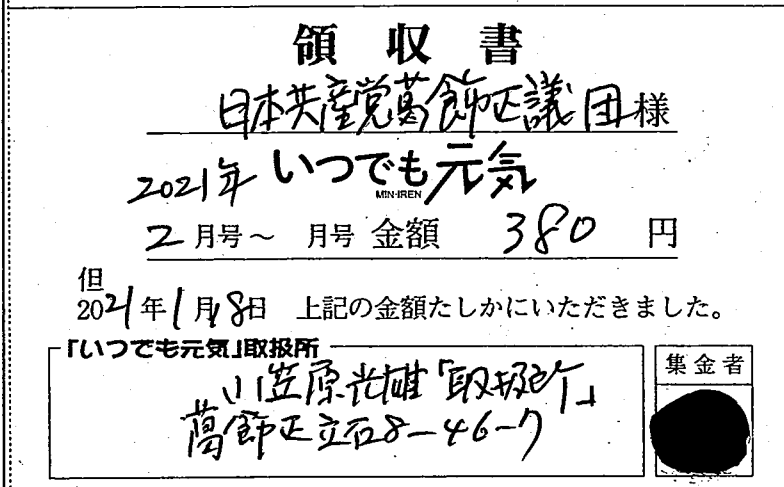 領収書
日本共産党葛飾区議団様
2021年 いつでも元気
MIN-IREN
2月号～ 月号 金額 380 円
但
2021年1月18日 上記の金額たしかにいただきました。
「いつでも元気」取扱所
小笠原光雄「取扱所」
葛飾区立石8-46-7
集金者